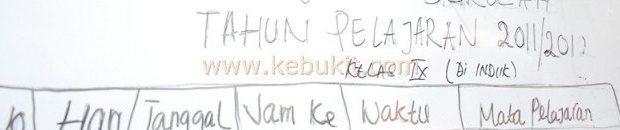 TAHUN PELAJARAN 2011/2012
www.kebukit.com
KELAS IX (Di INDUK)
Hari Tanggal Jam Ke Waktu Mata Pelajaran